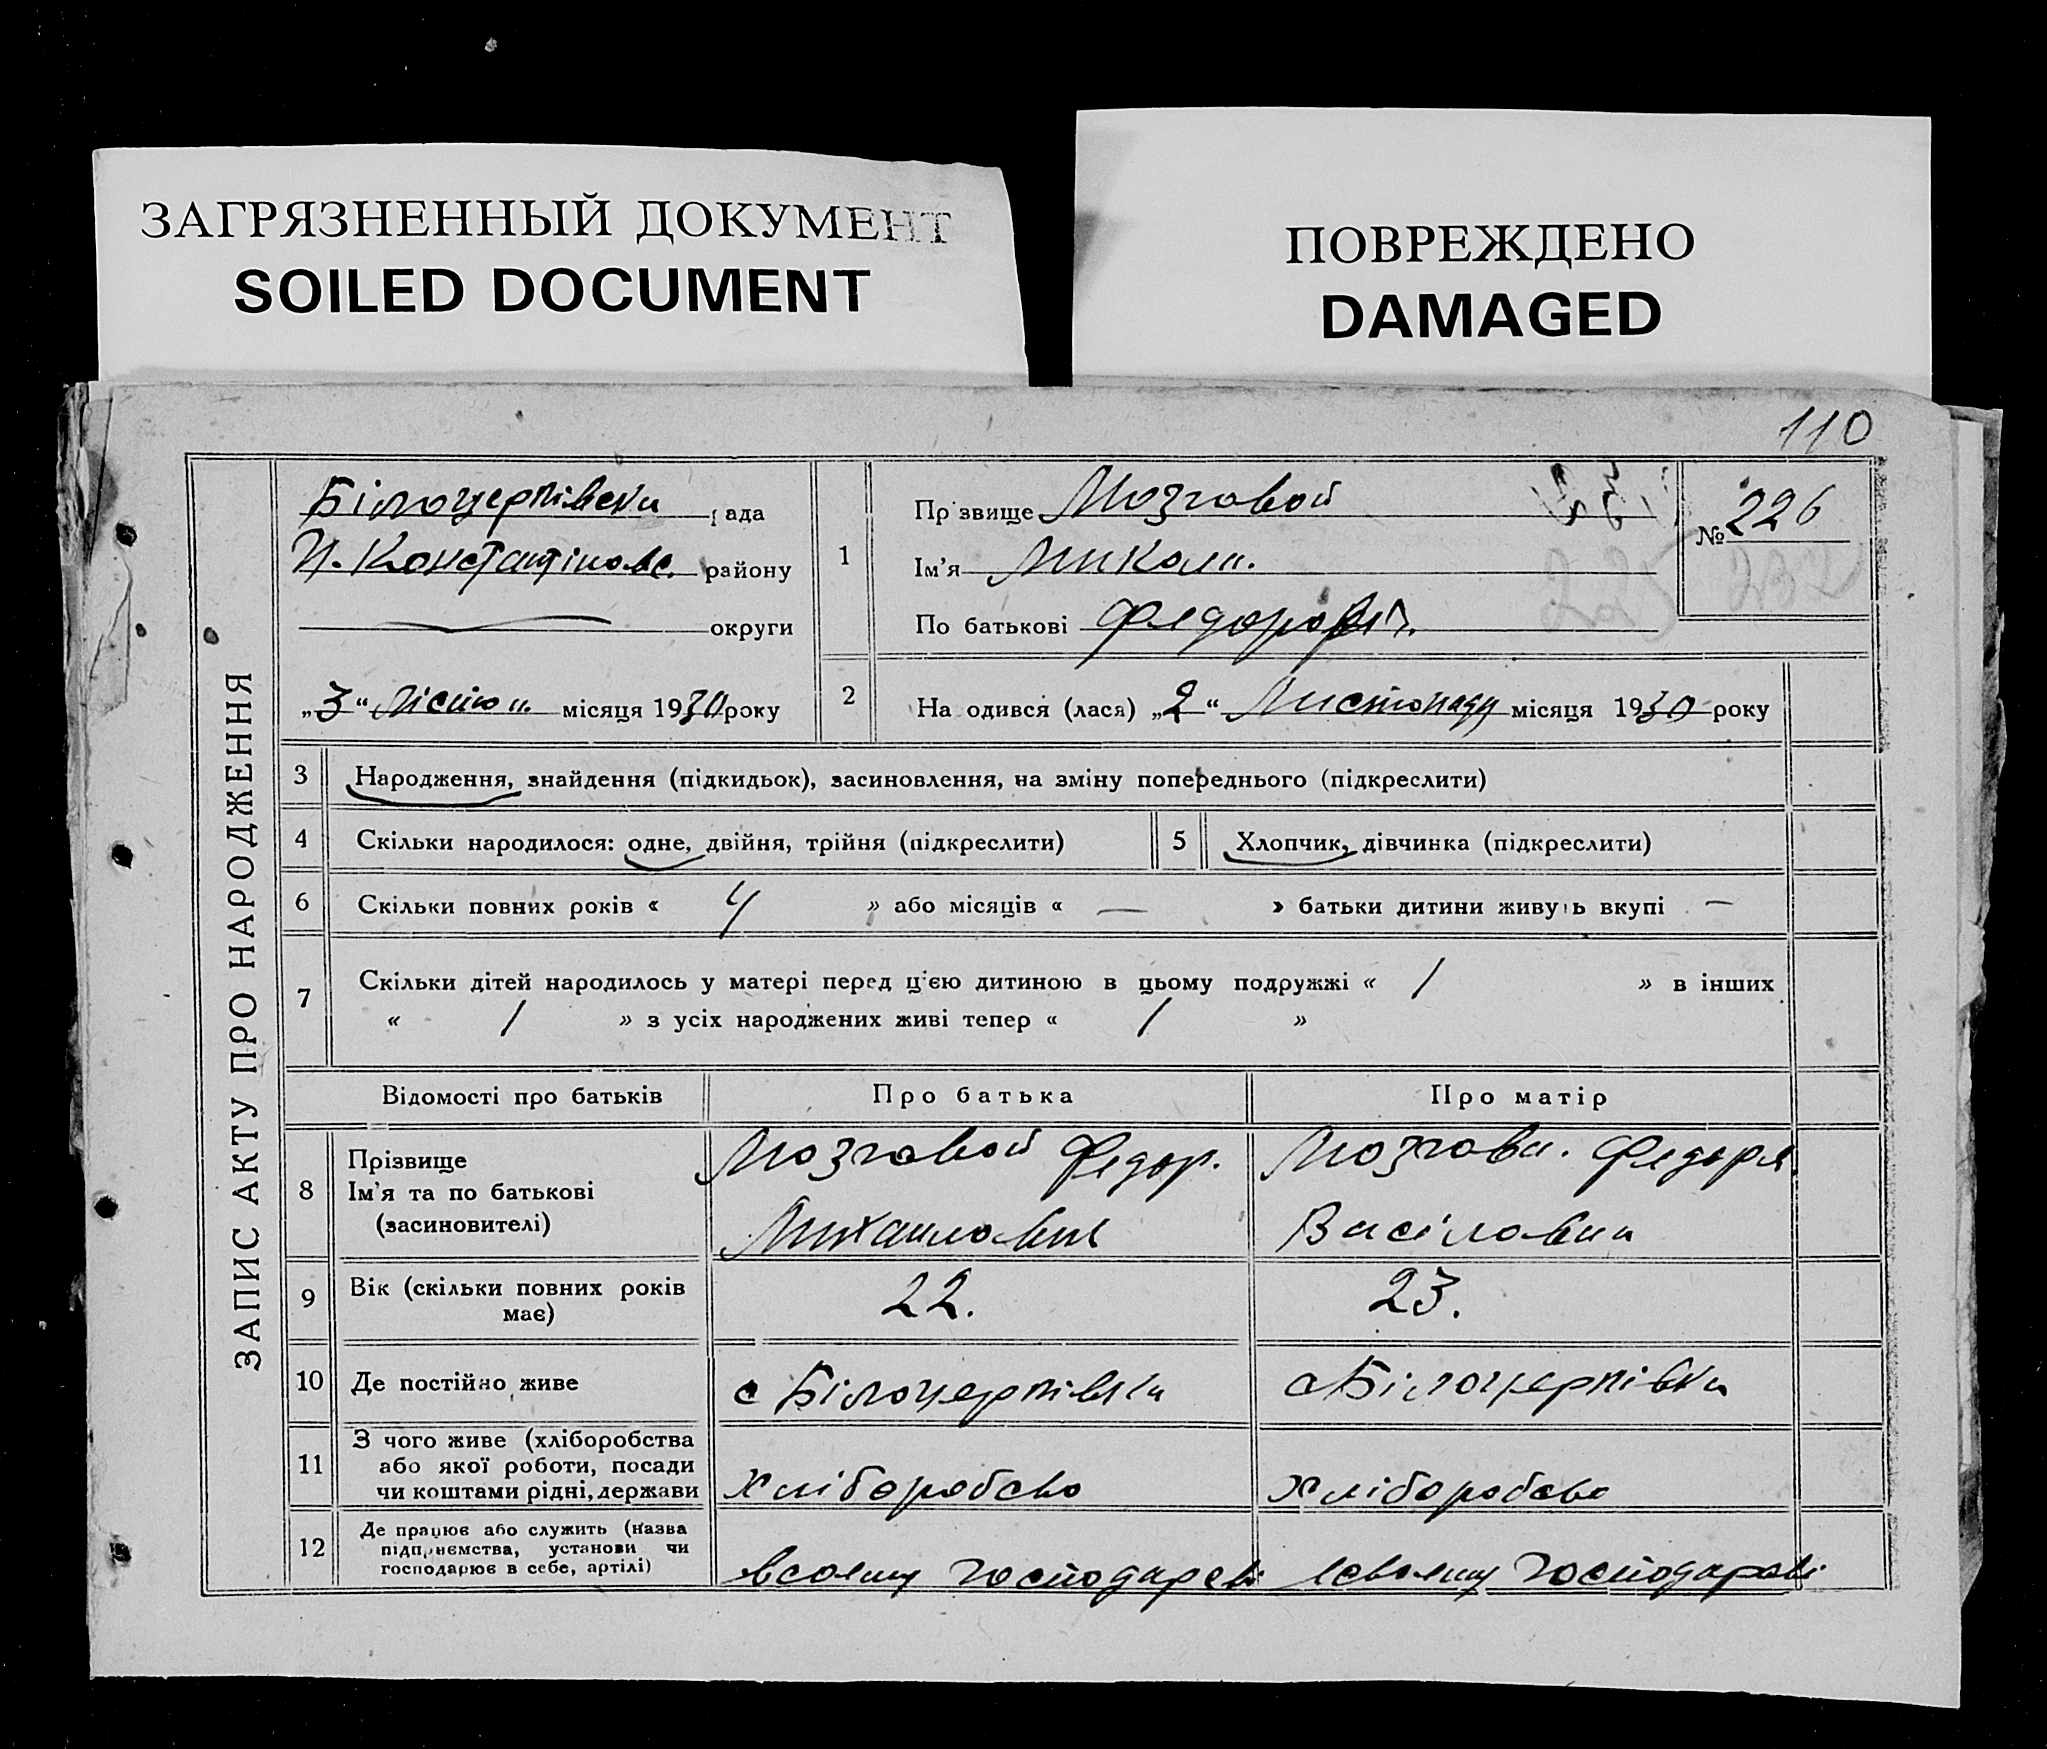 ЗАГРЯЗНЕННЫЙ ДОКУМЕНТ
SOILED DOCUMENT
ПОВРЕЖДЕНО
DAMAGED
110
ЗАПИС АКТУ ПРО НАРОДЖЕННЯ
Білоцерківська рада
Константіновс. району
округи
„3“ місяця 1930 року
1
Прізвище Мозговой
Ім'я Микола.
По батькові Федорович.
№ 226
2
Народився (лася) „2“ Листопаду місяця 1930 року
3 Народження, знайдення (підкидьок), засиновлення, на зміну попереднього (підкреслити)
4 Скільки народилося: одне, двійня, трійня (підкреслити)
5 Хлопчик, дівчинка (підкреслити)
6 Скільки повних років « 4 » або місяців « — » батьки дитини живуть вкупі —
7 Скільки дітей народилось у матері перед цією дитиною в цьому подружжі « / » в інших
« / » з усіх народжених живі тепер « / »
Відомості про батьків Про батька Про матір
8 Прізвище
Ім'я та по батькові
(засиновителі)
Мозговой Федор.
Михаилович
Мозгова. Федоря.
Васіловна
9 Вік (скільки повних років
має)
22.
23.
10 Де постійно живе
с Білоцерківка
с Білоцерківка
11 З чого живе (хліборобства
або якої роботи, посади
чи коштами рідні, держави
Хліборобсво
Хліборобсво
12 Де працює або служить (назва
підприємства, установи чи
господарює в себе, артілі)
господареві
господареві